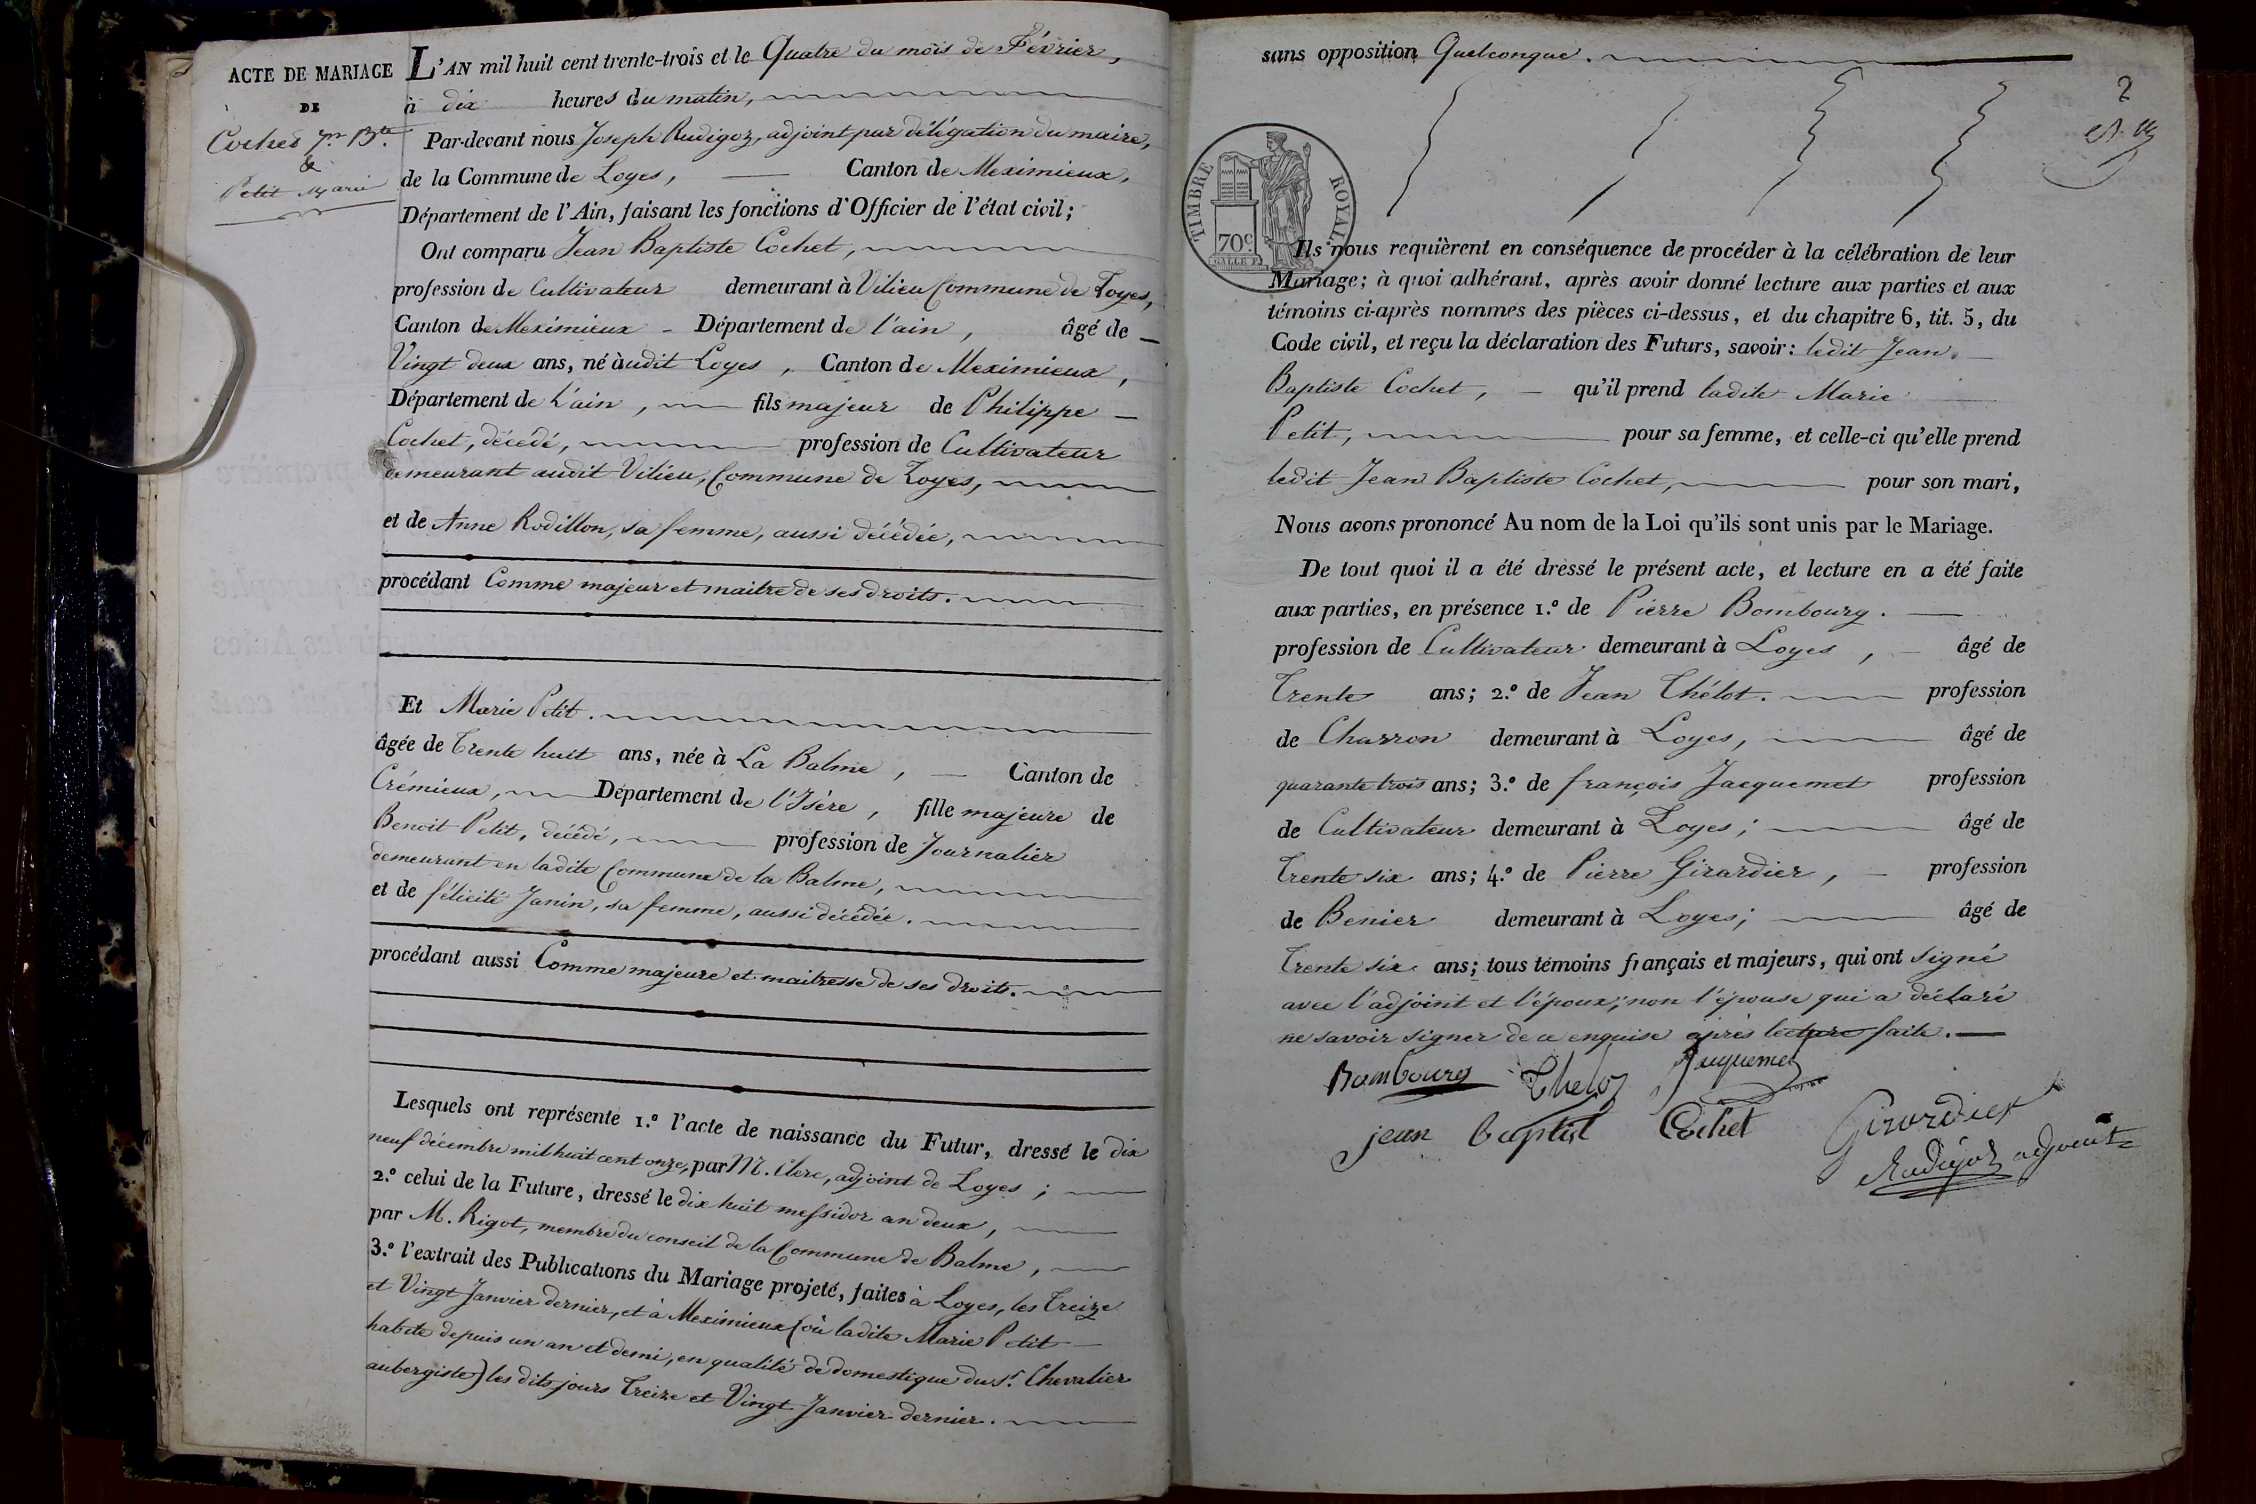 ACTE DE MARIAGE
DE
Cochet Jn. Bte.
&
Petit Marie
L'AN mil huit cent trente-trois et le Quatre du mois de Février,
à dix heures du matin,
Par-devant nous Joseph Rudigoz, adjoint par délégation du maire,
de la Commune de Loyes, Canton de Meximieux,
Département de l'Ain, faisant les fonctions d'Officier de l'état civil;
Ont comparu Jean Baptiste Cochet,
profession de Cultivateur demeurant à Vilieu Commune de Loyes,
Canton de Meximieux - Département de l'ain, âgé de
Vingt deux ans, né àudit Loyes, Canton de Meximieux,
Département de L'ain, fils majeur de Philippe
Cochet, décedé, profession de Cultivateur
demeurant audit Vilieu, Commune de Loyes,
et de Anne Rodillon, sa femme, aussi décédée,
procédant Comme majeur et maitre de ses droits.
Et Marie Petit.
âgée de Trente huit ans, née à La Balme, Canton de
Crémieux, Département de l'Isère, fille majeure de
Benoit Petit, décédé, profession de Journalier
demeurant en ladite Commune de la Balme,
et de félicité Janin, sa femme, aussi décédée.
procédant aussi Comme majeure et maitresse de ses droits.
Lesquels ont représenté 1.º l'acte de naissance du Futur, dressé le dix
neuf décembre mil huit cent onze, par M. Clerc, adjoint de Loyes;
2.º celui de la Future, dressé le dix huit messidor an deux,
par M. Rigot, membre du conseil de la Commune de Balme,
3.º l'extrait des Publications du Mariage projeté, faites à Loyes, les Treize
et Vingt Janvier dernier, et à Meximieux (où ladite Marie Petit
habite depuis un an et demi, en qualité de domestique du Sr. Chevalier
aubergiste) les dits jours Treize et Vingt Janvier dernier.
sans opposition Quelconque.
2
TIMBRE ROYAL
70c
Ils nous requièrent en conséquence de procéder à la célébration de leur
Mariage; à quoi adhérant, après avoir donné lecture aux parties et aux
témoins ci-après nommés des pièces ci-dessus, et du chapitre 6, tit. 5, du
Code civil, et reçu la déclaration des Futurs, savoir: ledit Jean
Baptiste Cochet, qu'il prend ladite Marie
Petit, pour sa femme, et celle-ci qu'elle prend
ledit Jean Baptiste Cochet, pour son mari,
Nous avons prononcé Au nom de la Loi qu'ils sont unis par le Mariage.
De tout quoi il a été dressé le présent acte, et lecture en a été faite
aux parties, en présence 1.º de Pierre Bombourg.
profession de Cultivateur demeurant à Loyes, âgé de
Trente ans; 2.º de Jean Thélot. profession
de Charron demeurant à Loyes, âgé de
quarante trois ans; 3.º de françois Jacquemet profession
de Cultivateur demeurant à Loyes; âgé de
Trente six ans; 4.º de Pierre Girardier, profession
de Benier demeurant à Loyes; âgé de
Trente six ans; tous témoins français et majeurs, qui ont signé
avec l'adjoint et l'époux; non l'épouse qui a déclaré
ne savoir signer de ce enquise après lecture faite.
Bombourg Thelot Jacquemet
jean baptist Cochet Girardier
Rudigoz adjoint